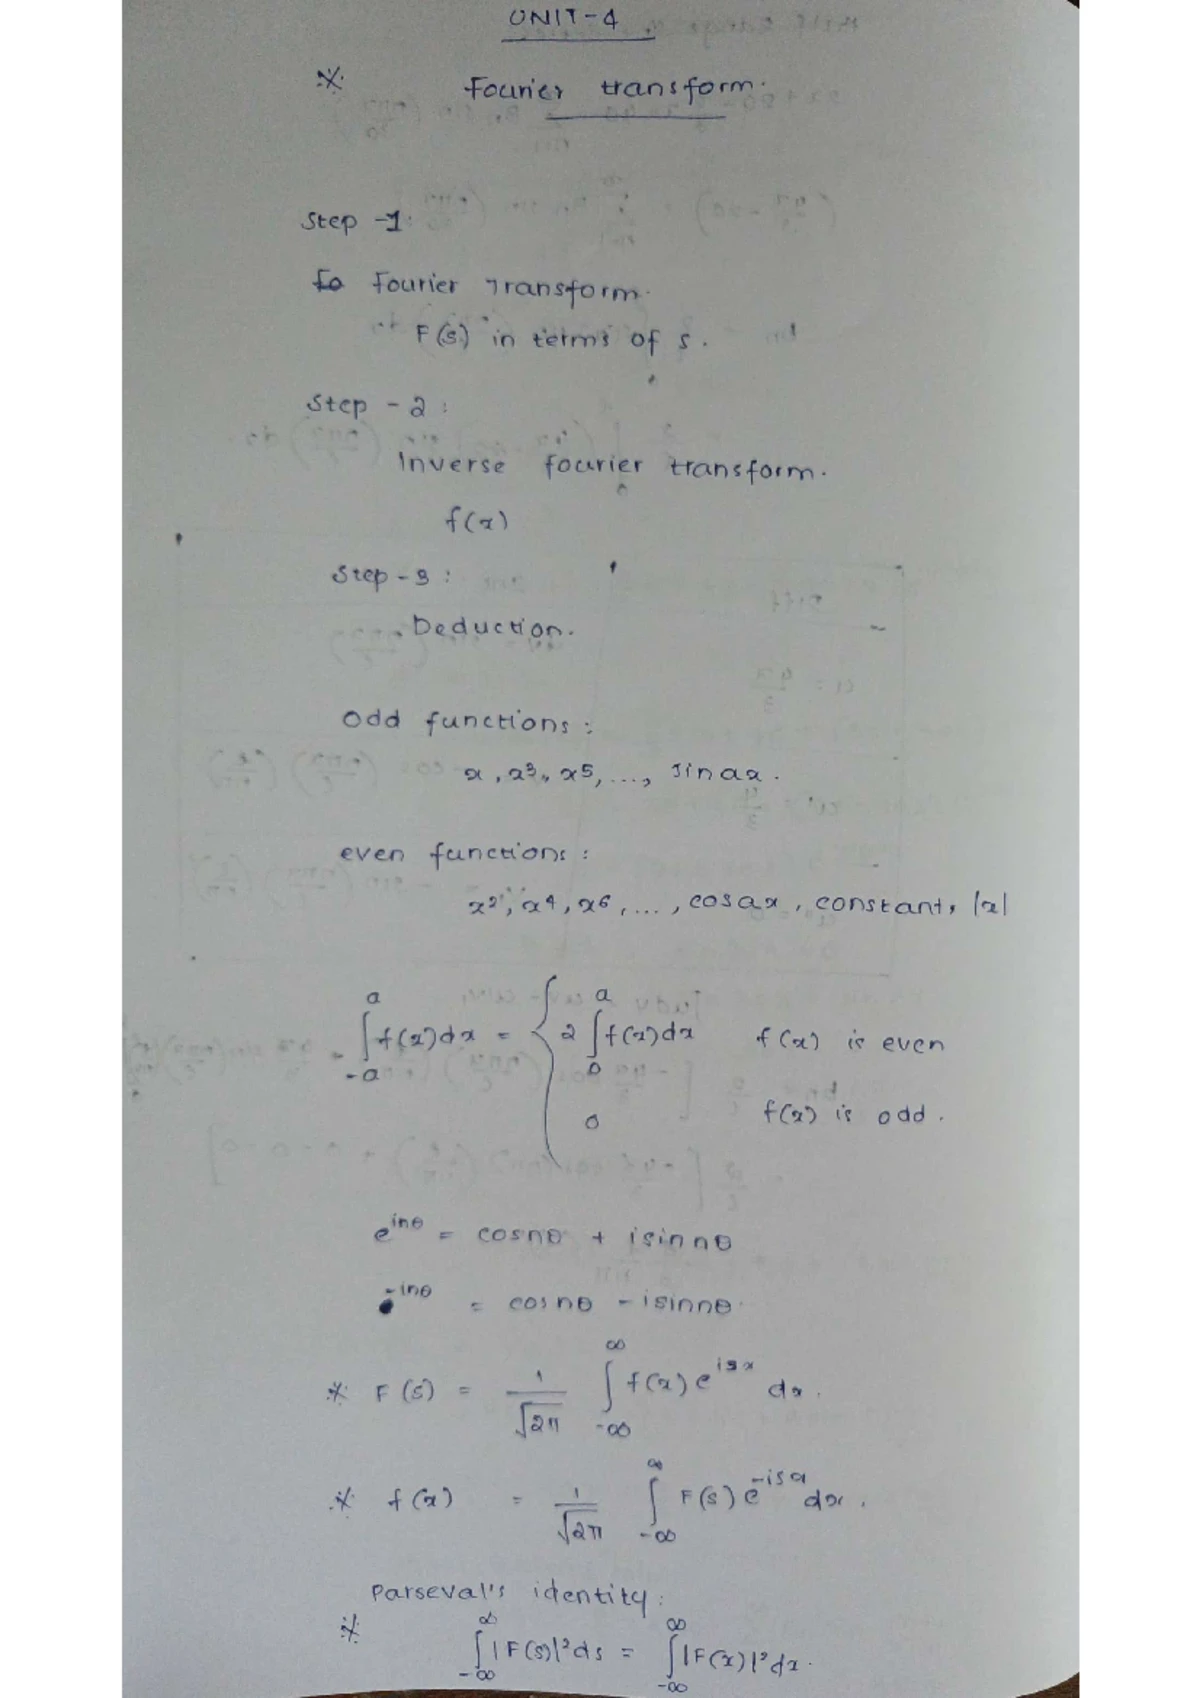 UNIT-4
※ Fourier transform.
Step-1:
Fourier Transform.
F(s) in terms of s.
Step-2:
Inverse fourier transform.
f(x)
Step-3:
Deduction.
odd functions:
x, x³, x⁵, ..., sinax.
even functions:
x², x⁴, x⁶, ..., cosax, constant, |x|
∫_{-a}^{a} f(x)dx = { 2 ∫_{0}^{a} f(x)dx f(x) is even
0 f(x) is odd.
e^{inθ} = cosnθ + isinnθ
e^{-inθ} = cosnθ - isinnθ
※ F(s) = 1/√2π ∫_{-∞}^{∞} f(x)e^{isx} dx.
※ f(x) = 1/√2π ∫_{-∞}^{∞} F(s)e^{-isx} dx.
Parseval's identity:
※ ∫_{-∞}^{∞} |F(s)|²ds = ∫_{-∞}^{∞} |F(x)|²dx.